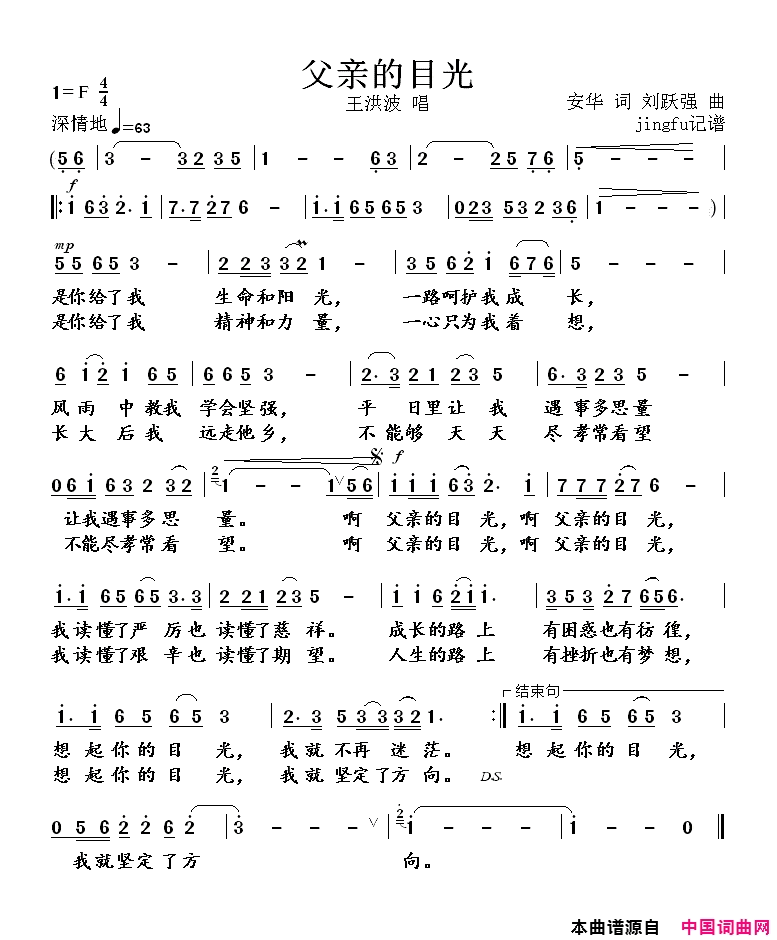 父亲的目光
1=F 4/4
王洪波 唱
安华 词 刘跃强 曲
深情地 ♩=63
jingfu记谱
(5 6 | 3 - 3 2 3 5 | 1 - - 6 3 | 2 - 2 5 7 6 | 5 - - - |
f
‖: 1 6 3 2. 1 | 7. 7 2 7 6 - | 1. 1 6 5 6 5 3 | 0 2 3 5 3 2 3 6 | 1 - - - ) |
mp
5 5 6 5 3 - | 2 2 3 3 2 1 - | 3 5 6 2 1 6 7 6 | 5 - - - |
是你给了我 生命和阳 光, 一路呵护我成 长,
是你给了我 精神和力 量, 一心只为我着 想,
6 1 2 1 6 5 | 6 6 5 3 - | 2. 3 2 1 2 3 5 | 6. 3 2 3 5 - |
风雨 中教我 学会坚强, 平 日里让 我 遇事多思量
长大 后我 远走他乡, 不能够 天 天 尽孝常看望
0 6 1 6 3 2 3 2 | 2 1 - - 1 ∨ 5 6 | f 1 1 1 6 3 2. 1 | 7 7 7 2 7 6 - |
让我遇事多思 量。 啊 父亲的目 光, 啊 父亲的目 光,
不能尽孝常看 望。 啊 父亲的目 光, 啊 父亲的目 光,
1. 1 6 5 6 5 3. 3 | 2 2 1 2 3 5 - | 1 1 6 2 1 1. | 3 5 3 2 7 6 5 6. |
我读懂了严 厉也 读懂了慈 祥。 成长的路 上 有困惑也有彷 徨,
我读懂了艰 辛也 读懂了期 望。 人生的路 上 有挫折也有梦 想,
结束句
1. 1 6 5 6 5 3 | 2. 3 5 3 3 3 2 1. :‖ 1. 1 6 5 6 5 3 |
想 起你的目 光, 我就不再 迷茫。 想 起你的目 光,
想 起你的目 光, 我就坚定了方向。 D.S.
0 5 6 2 2 6 2 | 3 - - - ∨ | 2 1 - - - | 1 - - 0 ‖
我就坚定了方 向。
本曲谱源自 中国词曲网